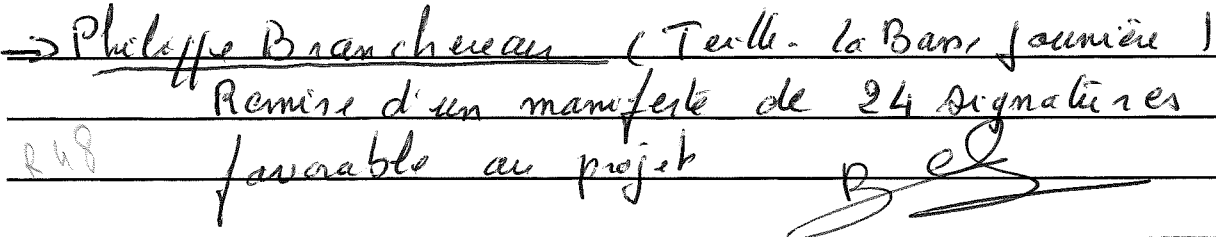 => Philippe Branchereau ( Teillé - la Basse Jounière )
Remise d'un manifeste de 24 signatures
R48 favorable au projet